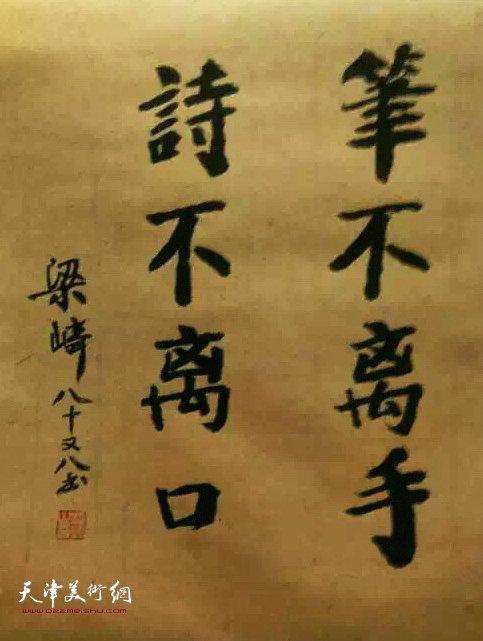 筆不离手
詩不离口
梁崎八十又八书
天津美術網
www.022meishu.com